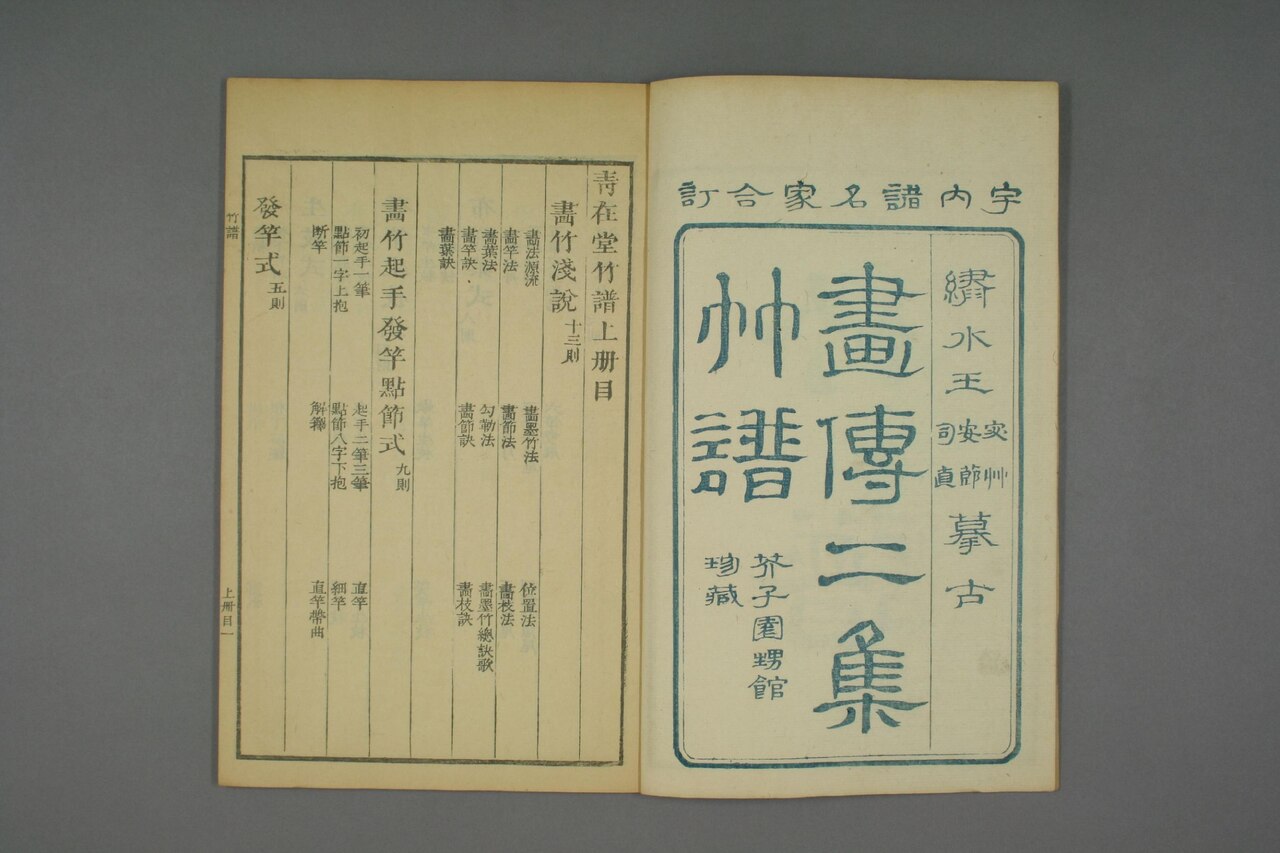 宇內諸名家合訂
繡水王宓艸安節司直摹古
畫傳二集
竹譜
芥子園甥館
珍藏
靑在堂竹譜上册目
畫竹淺說十三則
畫法源流
畫墨竹法
位置法
畫竿法
畫節法
畫枝法
畫葉法
勾勒法
畫墨竹總訣歌
畫竿訣
畫節訣
畫枝訣
畫葉訣
畫竹起手發竿點節式九則
初起手一筆
起手二筆三筆
直竿
點節一字上抱
點節八字下抱
細竿
断竿
解籜
直竿帶曲
發竿式五則
竹譜
上册目一